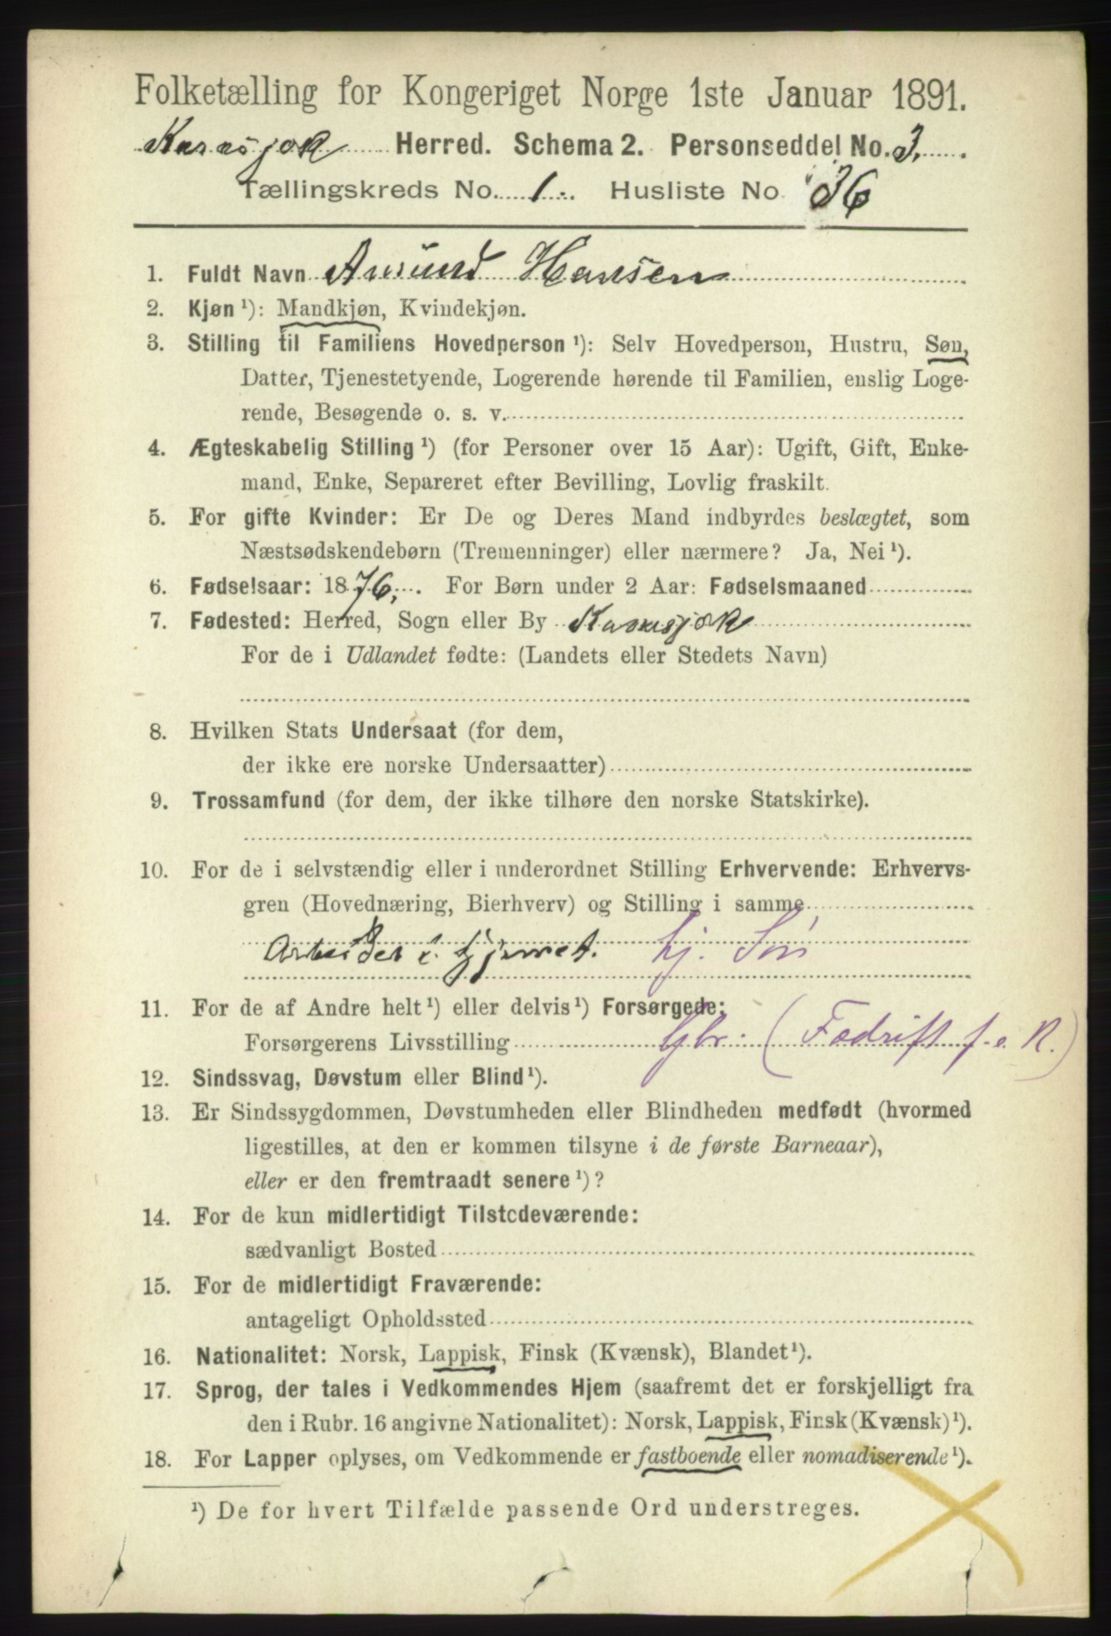 Folketælling for Kongeriget Norge 1ste Januar 1891.
Karasjok Herred. Schema 2. Personseddel No. 3.
Tællingskreds No. 1. Husliste No. 36
1. Fuldt Navn Amund Hansen
2. Kjøn ¹): Mandkjøn, Kvindekjøn.
3. Stilling til Familiens Hovedperson ¹): Selv Hovedperson, Hustru, Søn,
Datter, Tjenestetyende, Logerende hørende til Familien, enslig Loge-
rende, Besøgende o. s. v.
4. Ægteskabelig Stilling ¹) (for Personer over 15 Aar): Ugift, Gift, Enke-
mand, Enke, Separeret efter Bevilling, Lovlig fraskilt.
5. For gifte Kvinder: Er De og Deres Mand indbyrdes beslægtet, som
Næstsødskendebørn (Tremenninger) eller nærmere? Ja, Nei ¹).
6. Fødselsaar: 1876. For Børn under 2 Aar: Fødselsmaaned
7. Fødested: Herred, Sogn eller By Karasjok
For de i Udlandet fødte: (Landets eller Stedets Navn)
8. Hvilken Stats Undersaat (for dem,
der ikke ere norske Undersaatter)
9. Trossamfund (for dem, der ikke tilhøre den norske Statskirke).
10. For de i selvstændig eller i underordnet Stilling Erhvervende: Erhvervs-
gren (Hovednæring, Bierhverv) og Stilling i samme
Arbeider i hjemmet. hj. Søn
11. For de af Andre helt ¹) eller delvis ¹) Forsørgede:
Forsørgerens Livsstilling Gbr. (Fædrift f. e. R.)
12. Sindssvag, Døvstum eller Blind ¹).
13. Er Sindssygdommen, Døvstumheden eller Blindheden medfødt (hvormed
ligestilles, at den er kommen tilsyne i de første Barneaar),
eller er den fremtraadt senere ¹)?
14. For de kun midlertidigt Tilstedeværende:
sædvanligt Bosted
15. For de midlertidigt Fraværende:
antageligt Opholdssted
16. Nationalitet: Norsk, Lappisk, Finsk (Kvænsk), Blandet ¹).
17. Sprog, der tales i Vedkommendes Hjem (saafremt det er forskjelligt fra
den i Rubr. 16 angivne Nationalitet): Norsk, Lappisk, Finsk (Kvænsk) ¹).
18. For Lapper oplyses, om Vedkommende er fastboende eller nomadiserende ¹).
¹) De for hvert Tilfælde passende Ord understreges.